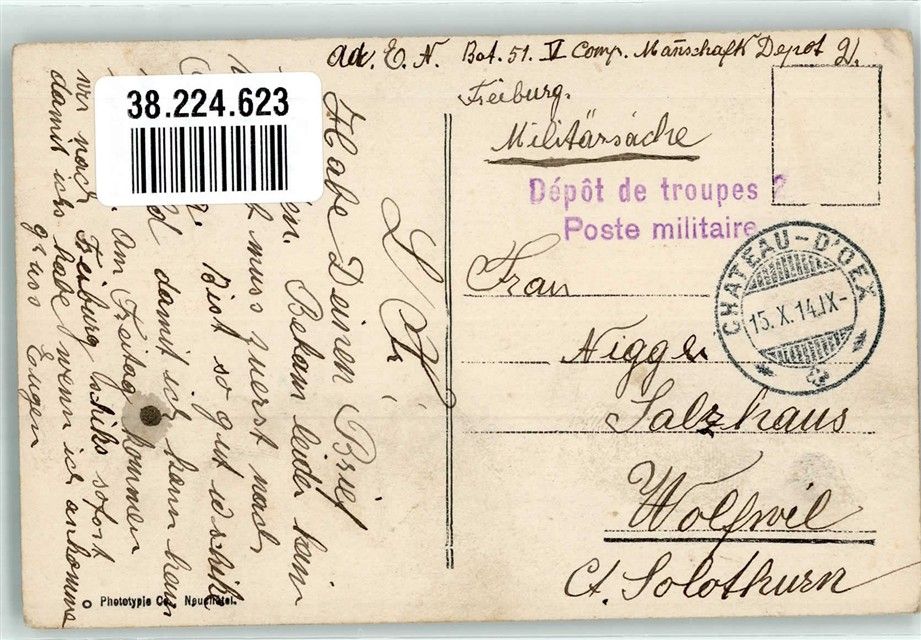 Adr. E. N. Bat. 51. V Comp. Mañschaft Depot 2).
Freiburg.
Militärsache
Dépôt de troupes 2
Poste militaire
CHATEAU-D'OEX
15.X.14.IX-
Frau
Niggli
Salzhaus
Wolfwil
Ct. Solothurn
38.224.623
L. A!
Habe Deinen Brief
Bekam leider kein
muss zuerst nach
Bist so gut u schike
damit ich kann heim
am Freitag kommen
wer nach Freiburg schiks sofort
damit ichs habe wenn ich ankomme
gruss Eugen
Phototypie Co. Neuchâtel.